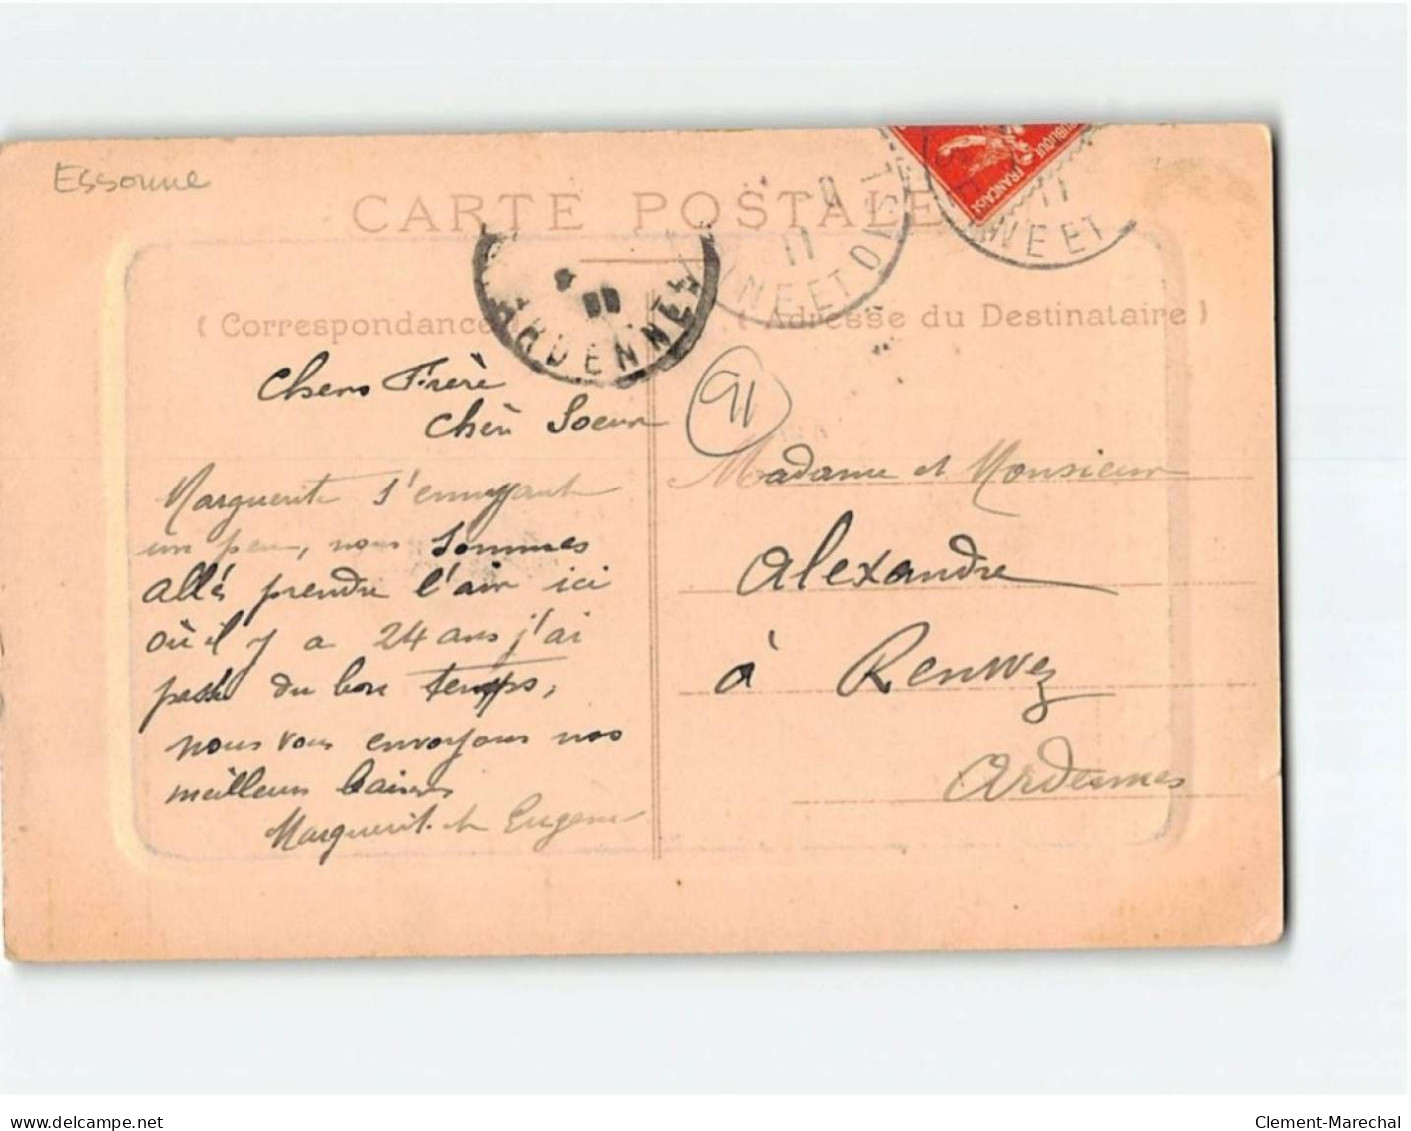 Essonne
CARTE POSTALE
RÉPUBLIQUE FRANÇAISE
11
NE ET OISE
11
NE ET
ARDENNES
( Correspondance
( Adresse du Destinataire )
91
Chers Frère
Chère Soeur
Marguerite s'ennuyant
un peu, nous sommes
allés prendre l'air ici
où il y a 24 ans j'ai
passé du bon temps,
nous vous envoyons nos
meilleurs baisers
Marguerite et Eugene
Madame et Monsieur
Alexandre
à Renwez
Ardennes
www.delcampe.net
Clement-Marechal